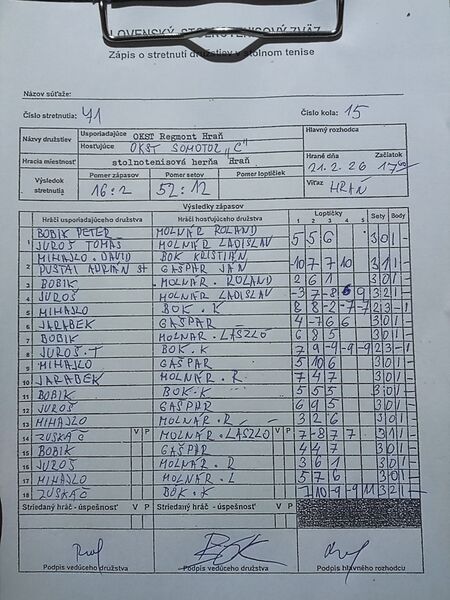 SLOVENSKÝ STOLNOTENISOVÝ ZVÄZ
Zápis o stretnutí družstiev v stolnom tenise
Názov súťaže:
Číslo stretnutia: 71 Číslo kola: 15
Názvy družstiev Usporiadajúce OKST Regmont Hraň Hlavný rozhodca
Hosťujúce OKST SOMOTOR "C"
Hracia miestnosť stolnotenisová herňa Hraň Hrané dňa Začiatok
21.2.26 17
Výsledok stretnutia Pomer zápasov Pomer setov Pomer loptičiek Víťaz
16:2 52:12 HRAŇ
Výsledky zápasov
Hráči usporiadajúceho družstva Hráči hosťujúceho družstva Loptičky Sety Body
1 2 3 4 5
BOBIK PETER MOLNÁR ROLAND
1 JUROŠ TOMÁŠ MOLNÁR LADISLAV 5 5 6 3 0 1 -
MIHAJLO DAVID BOK KRISTIÁN
2 PUSTAI ADRIÁN st GAŠPAR JÁN -10 7 7 10 3 1 1 -
3 BOBIK MOLNÁR ROLAND 2 6 1 3 0 1 -
4 JUROŠ MOLNÁR LADISLAV -3 7 -8 6 9 3 2 1 -
5 MIHAJLO BOK.K 8 8 -2 -7 -7 2 3 - 1
6 JARABEK GAŠPAR 4 -7 6 6 3 1 1 -
7 BOBIK MOLNÁR.LÁSZLÓ 6 8 5 3 0 1 -
8 JUROŠ.T BOK.K 7 9 -4 -9 -9 2 3 - 1
9 MIHAJLO GAŠPAR 5 10 6 3 0 1 -
10 JARABEK MOLNÁR.R 7 4 7 3 0 1 -
11 BOBIK BOK.K 5 5 5 3 0 1 -
12 JUROŠ GAŠPAR 6 9 5 3 0 1 -
13 MIHAJLO MOLNÁR.R 3 2 6 3 0 1 -
14 ZUSKÁČ V P MOLNÁR.LÁSZLÓ V P 7 -8 7 7 3 1 1 -
15 BOBIK GAŠPAR 4 4 7 3 0 1 -
16 JUROŠ MOLNÁR.R 3 6 1 3 0 1 -
17 MIHAJLO MOLNÁR.L 5 7 6 3 0 1 -
18 ZUSKÁČ BOK.K 7 10 -9 -9 11 3 2 1 -
Striedaný hráč - úspešnosť V P Striedaný hráč - úspešnosť V P
BOK
Podpis vedúceho družstva Podpis vedúceho družstva Podpis hlavného rozhodcu